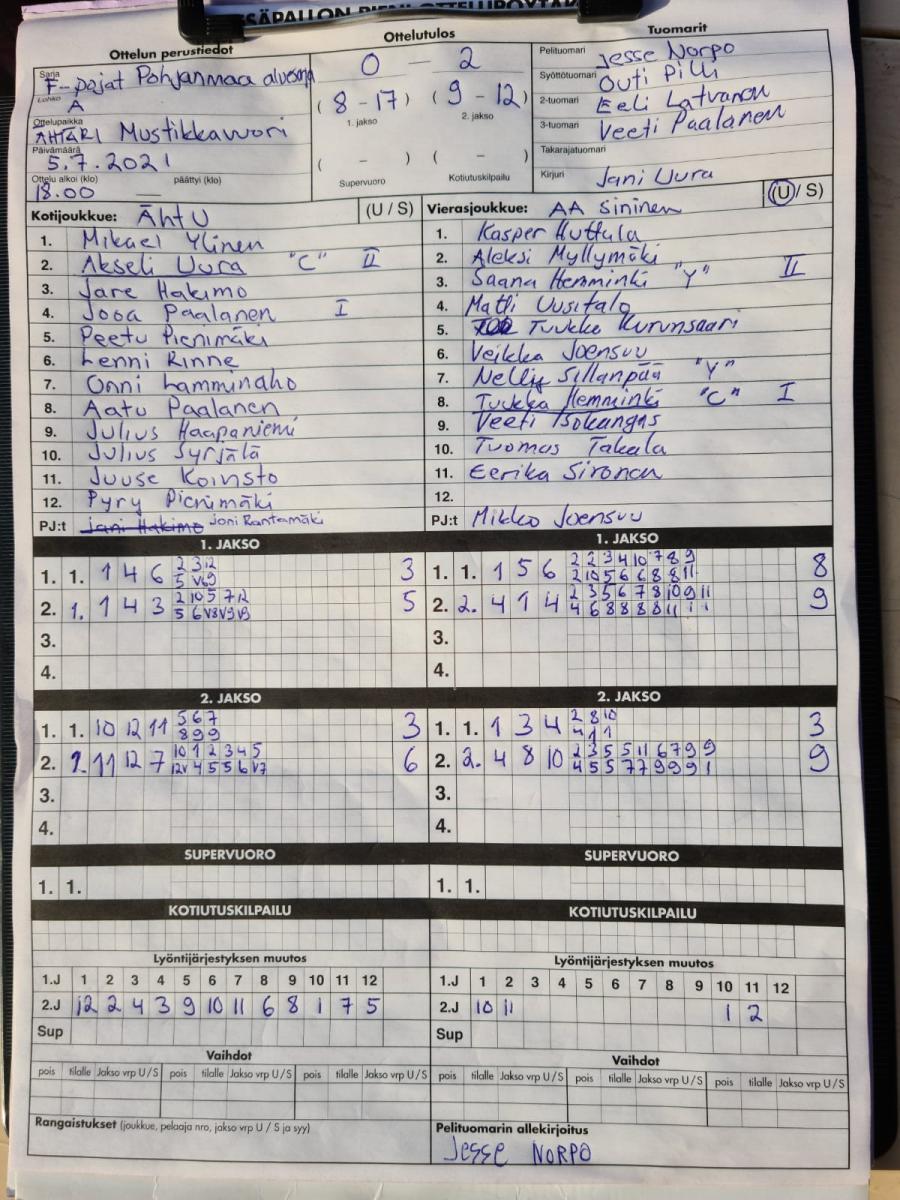 Ottelun perustiedot
Ottelutulos
Tuomarit
Sarja F-pojat Pohjanmaa
Lohko A
Ottelupaikka
ÄHTÄRI Mustikkavuori
Päivämäärä
5.7.2021
Ottelu alkoi (klo) päättyi (klo)
18.00 —
0 — 2
(8 - 17) (9 - 12)
1. jakso 2. jakso
( - ) ( - )
Supervuoro Kotiutuskilpailu
Pelituomari Jesse Norpo
Syöttötuomari Outi Pilli
2-tuomari Eeli Latvanen
3-tuomari Veeti Paalanen
Takarajatuomari
Kirjuri Jani Uura
Kotijoukkue: ÄhtU (U / S)
1. Mikael Ylinen
2. Akseli Uura "C" II
3. Jare Hakimo
4. Jooa Paalanen I
5. Peetu Pienimäki
6. Lenni Rinne
7. Onni Lamminaho
8. Aatu Paalanen
9. Julius Haapaniemi
10. Julius Syrjälä
11. Juuse Koivisto
12. Pyry Pienimäki
PJ:t Jani Hakimo Joni Rantamäki
Vierasjoukkue: AA Sininen (U / S)
1. Kasper Huttula
2. Aleksi Myllymäki
3. Saana Hemminki "Y" II
4. Matti Uusitalo
5. Tuukka Kurunsaari
6. Veikka Joensuu
7. Nelly Sillanpää "Y"
8. Tuukka Hemminki "C" I
9. Veeti Isokangas
10. Tuomas Takala
11. Eerika Sironen
12.
PJ:t Mikko Joensuu
1. JAKSO
1. 1. 1 4 6 3
2. 1. 1 4 3 5
3.
4.
1. JAKSO
1. 1. 1 5 6 2 2 3 4 10 7 8 9 8
2 10 5 6 6 8 8 11
2. 2. 4 1 4 2 3 5 6 7 8 10 9 11 9
4 6 8 8 8 8 11 1 1
3.
4.
2. JAKSO
1. 1. 10 12 11 5 6 7 3
8 9 9
2. 2. 11 12 7 10 1 2 3 4 5 6
12V 4 5 5 6 V7
3.
4.
2. JAKSO
1. 1. 1 3 4 2 8 10 3
4 1 1
2. 2. 4 8 10 2 3 5 5 11 6 7 9 9 9
4 5 5 7 7 9 9 9 1
3.
4.
SUPERVUORO
1. 1.
SUPERVUORO
1. 1.
KOTIUTUSKILPAILU
KOTIUTUSKILPAILU
Lyöntijärjestyksen muutos
1.J 1 2 3 4 5 6 7 8 9 10 11 12
2.J 12 2 4 3 9 10 11 6 8 1 7 5
Sup
Lyöntijärjestyksen muutos
1.J 1 2 3 4 5 6 7 8 9 10 11 12
2.J 10 11 1 2
Sup
Vaihdot
pois tilalle Jakso vrp U / S pois tilalle Jakso vrp U / S pois tilalle Jakso vrp U / S
Vaihdot
pois tilalle Jakso vrp U / S pois tilalle Jakso vrp U / S pois tilalle Jakso vrp U / S
Rangaistukset (joukkue, pelaaja nro, jakso vrp U / S ja syy)
Pelituomarin allekirjoitus
Jesse NORPO